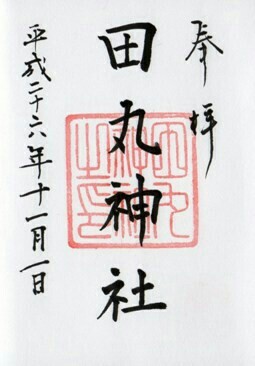 奉拝
田丸神社
平成二十六年十一月一日